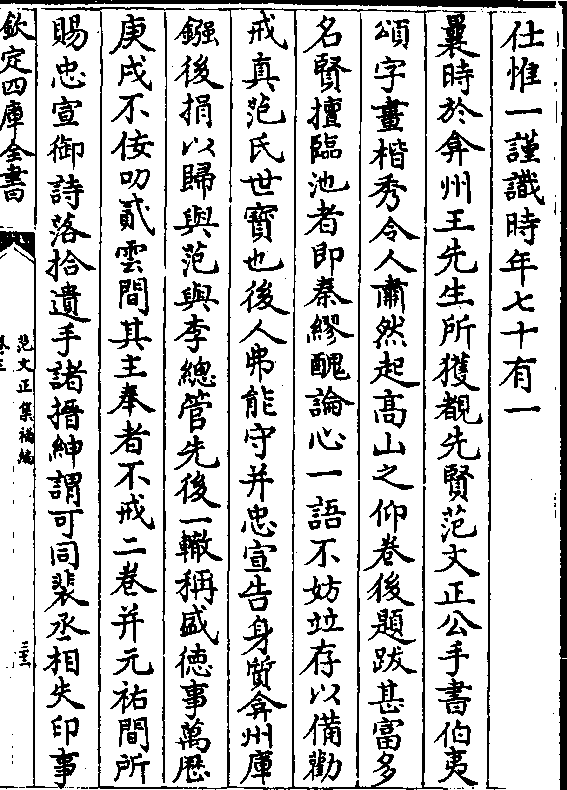 仕惟一謹識時年七十有一
曩時於弇州王先生所獲覩先賢范文正公手書伯夷
頌字畫楷秀令人肅然起髙山之仰卷後題跋甚富多
名賢擅臨池者即秦繆醜論心一語不妨竝存以備勸
戒真范氏世寶也後人弗能守并忠宣告身質弇州庫
鏹後捐以歸與范與李總管先後一轍稱盛徳事萬厯
庚戌不佞叨貳雲間其主奉者不戒二卷并元祐間所
賜忠宣御詩落拾遺手諸搢紳謂可同裴丞相失印事
欽定四庫全書
范文正集補編
卷三
三十三